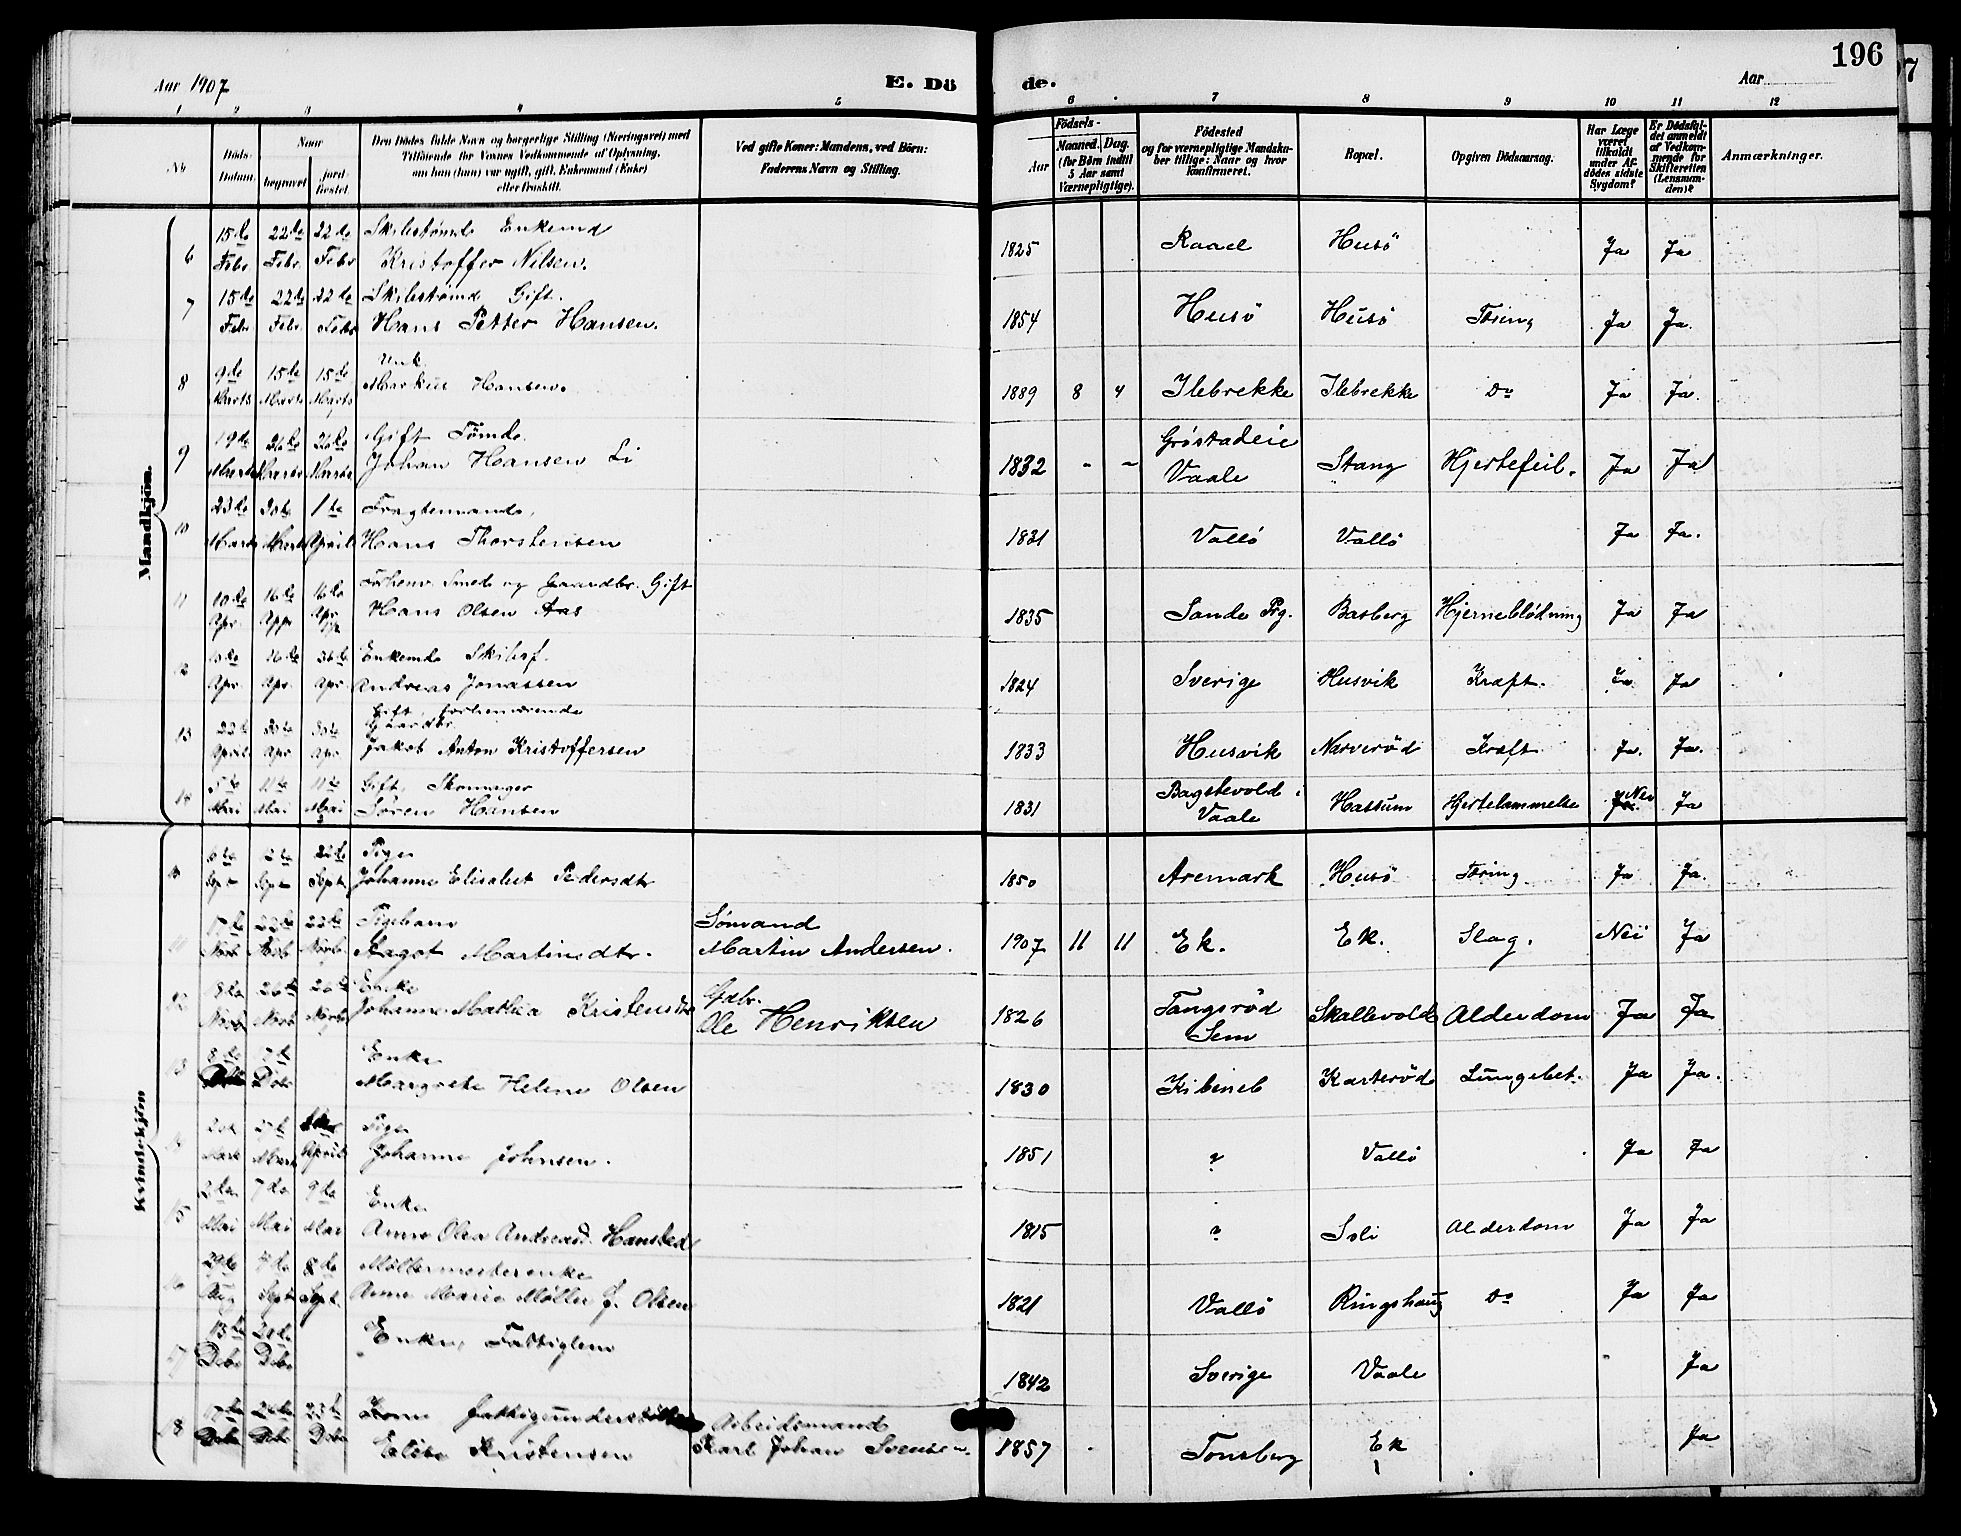 Aar 1907
E. Dö
de.
Aar
196
1 2 3 4 5 6 7 8 9 10 11 12
No
Döds-Datum.
Naar
begravet
jordfæstet
Den Dödes fulde Navn og borgerlige Stilling (Næringsvei) med
Tilföiende for Voxnes Vedkommende af Oplysning,
om han (hun) var ugift, gift, Enkemand (Enke)
eller fraskilt.
Ved gifte Koner: Mandens, ved Börn:
Faderens Navn og Stilling.
Födsels-
Aar
Maaned. Dag.
(for Börn indtil
5 Aar samt
Værnepligtige).
Födested
og for værnepligtige Mandska-
ber tillige: Naar og hvor
konfirmeret.
Bopæl.
Opgiven Dödsaarsag.
Har Læge
været
tilkaldt
under Af-
dödes sidste
Sygdom?
Er Dödsfal-
det anmeldt
af Vedkom-
mende for
Skifteretten
(Lensman-
den)?
Anmærkninger.
Mandkjön.
6 15de Febr 22de Febr. 22de Febr Enkemd
Kristoffer Nilsen. 1825 Raael Husö Ja Ja
7 15de Febr 22de Febr. 22de Febr Gift.
Hans Petter Hansen. 1854 Husö Husö Tæring Ja Ja.
8 9de Marts 15de Marts 15de Marts Unk
Markus Hansen. 1889 8 4 Ilebrekke Ilebrekke Do Ja Ja.
9 19de Marts 26de Marts 26de Marts Gift Tømde.
Johan Hansen Li 1832 - - Gröstadeie
Vaale Stang Hjertefeil. Ja Ja
10 23de Marts 30te Marts 1te April
Hans Thorstensen 1831 Vallö Vallö Ja Ja.
11 10de Apr. 16de Apr 16de Apr Forhenv. Smed og Gaardbr. Gift
Hans Olsen Aas 1835 Sande Prg. Basberg Hjerneblödning Ja Ja
12 Apr 16de Apr. Apr Enkemd
Andreas Jonassen 1824 Sverige Husvik Kræft. Ja Ja
13 April 30te Apr 30te Apr Gift, forhenværende
Gaardbr.
Jakob Anton Kristoffersen 1833 Husvik Narverød Kræft Ja. Ja.
14 5te Mai 11te Mai 11te Mai Gift, Skomager
Søren Hansen 1831 Bagstevold i
Vaale Hassum Hjertelammelse Nei Ja
Kvindekjön
Sept Sept Sept Pige
Johanne Elisabet Pedersdtr 1850 Aremark Husö Tæring. Ja Ja.
11 Pigebarn
Magot Martinsdtr. Sømand
Martin Andersen. 1907 11 11 Ek. Ek. Slag. Nei Ja
12 26de Enke
Johanne Mathea Kristensdtr Gdbr.
Ole Henriksen 1826 Tangsrød
Sem Skallevold Alderdom Ja Ja
13 Enke
Margrete Helene Olsen 1830 Kartserød Lungebet. Ja Ja.
14 April Pige
Johanne Johnsen. 1851 ? Vallö Ja Ja
15 2den Mai 7de Mai 9de Mai Enke
Anne Olea Andreasd. Hansted 1815 ? Alderdom Ja Ja
16 29de Aug Sept 8de Sept. Møllermesterenke
Anne Marie Møller f. Olsen 1821 Vallö Ringshaug Do Ja Ja
17 Debr Debr Enke, Fattiglem
1842 Sverige Vaale Ja
18 Debr Debr Debr Kone
Kristensen Arbeidsmand
Karl Johan Svensen. 1857 Tønsberg Ek Ja